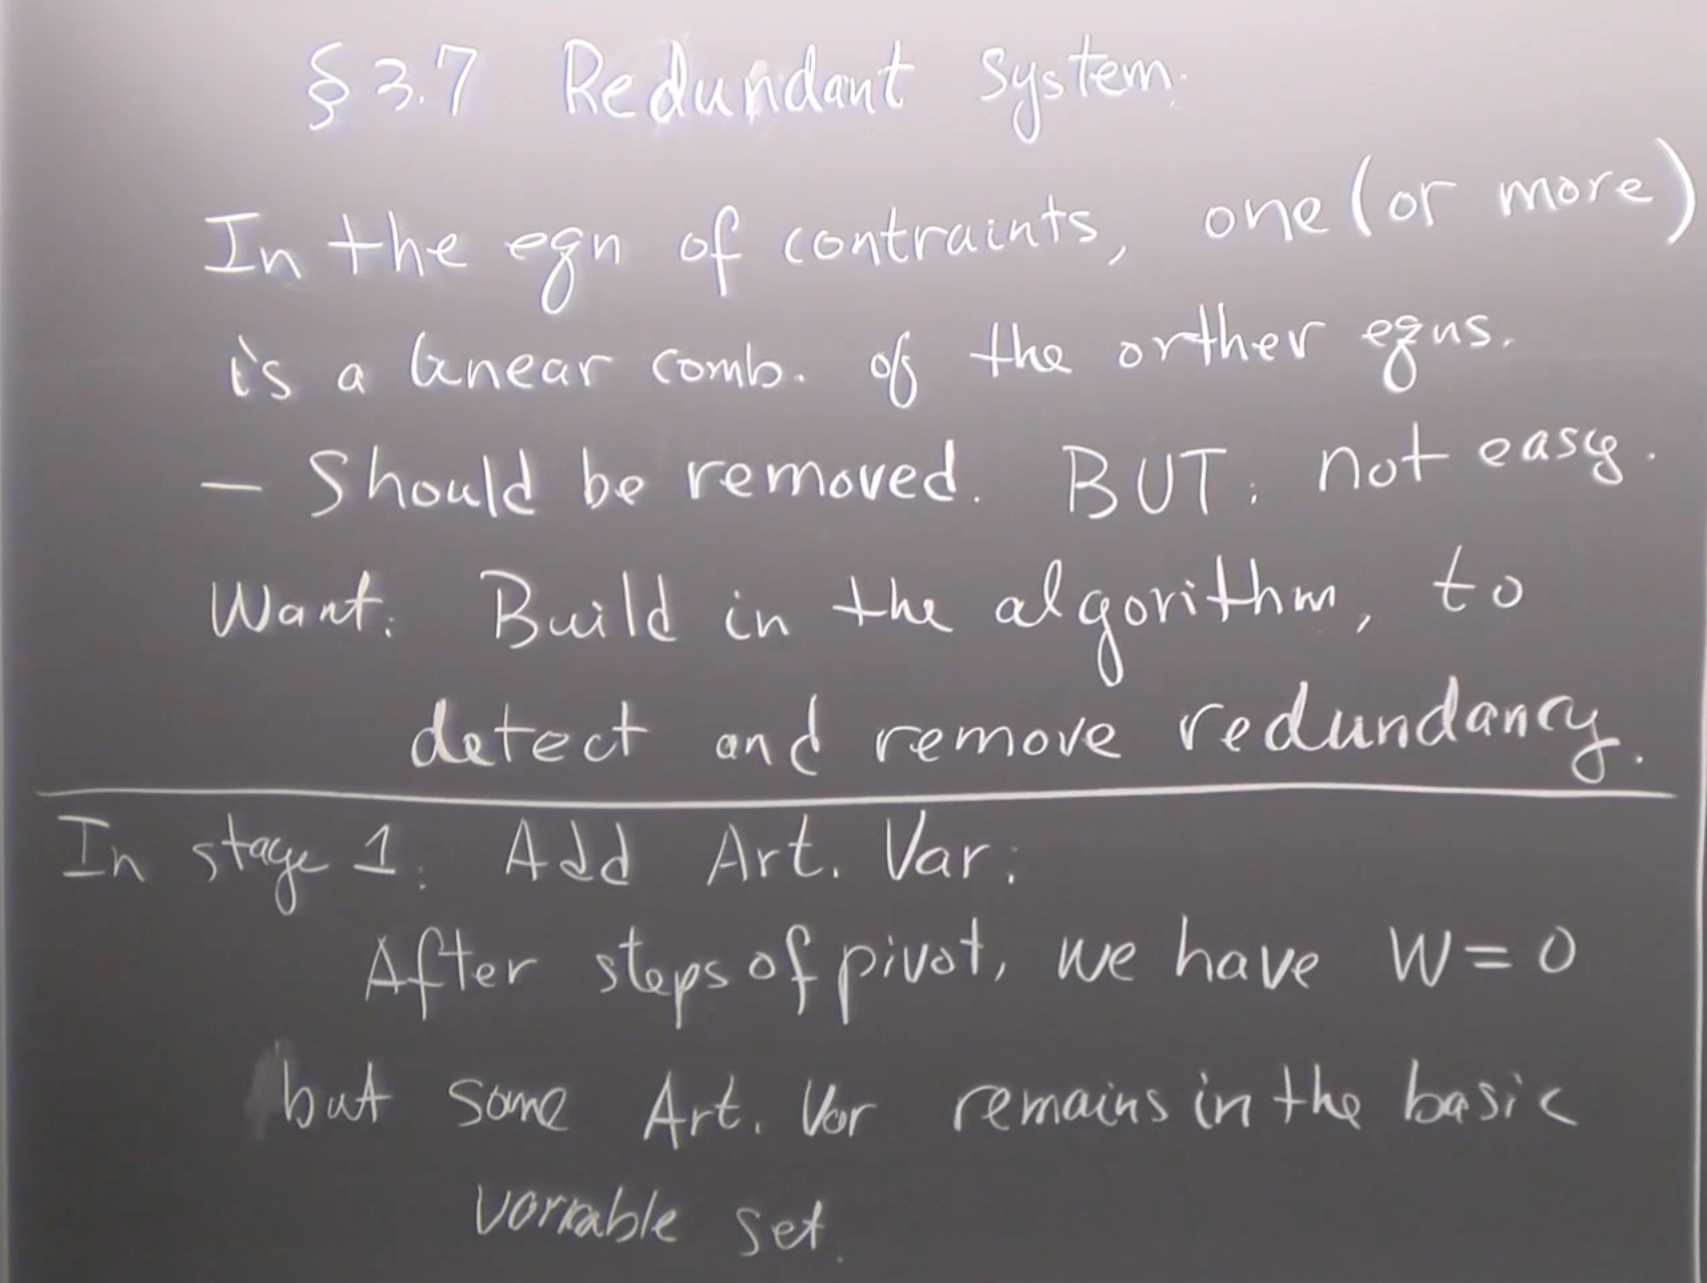 § 3.7 Redundant system.
In the eqn of contraints, one (or more)
is a linear comb. of the orther eqns.
— Should be removed. BUT: not easy.
Want: Build in the algorithm, to
detect and remove redundancy.
In stage 1: Add Art. Var:
After steps of pivot, we have W = 0
but some Art. Var remains in the basic
variable set.